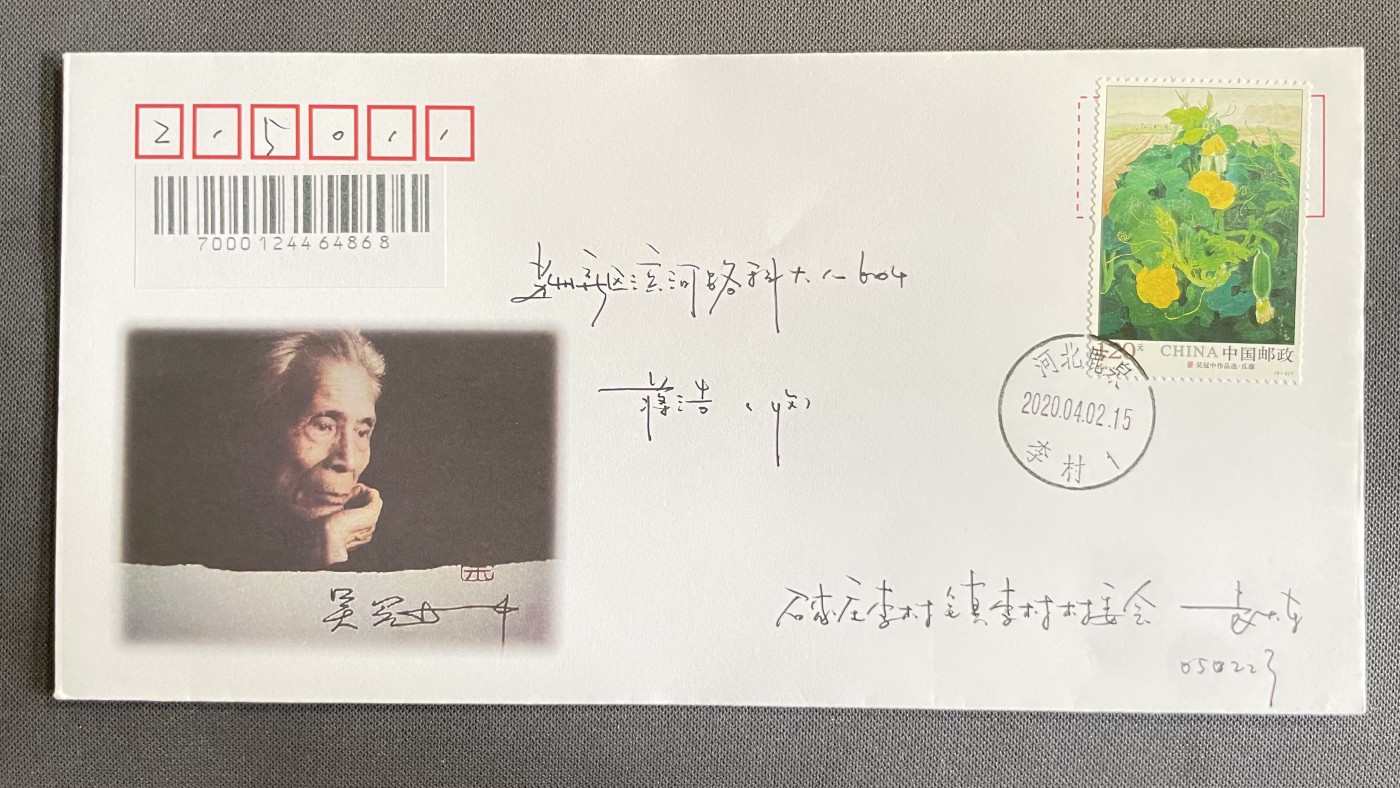 215011
7000124464868
苏州新区滨河路科大 6-604
蒋浩 (收)
1.20元 CHINA 中国邮政
吴冠中作品选·瓜藤
河北鹿泉
2020.04.02.15
李村 1
吴冠中
石家庄李村镇李村村委会
050223